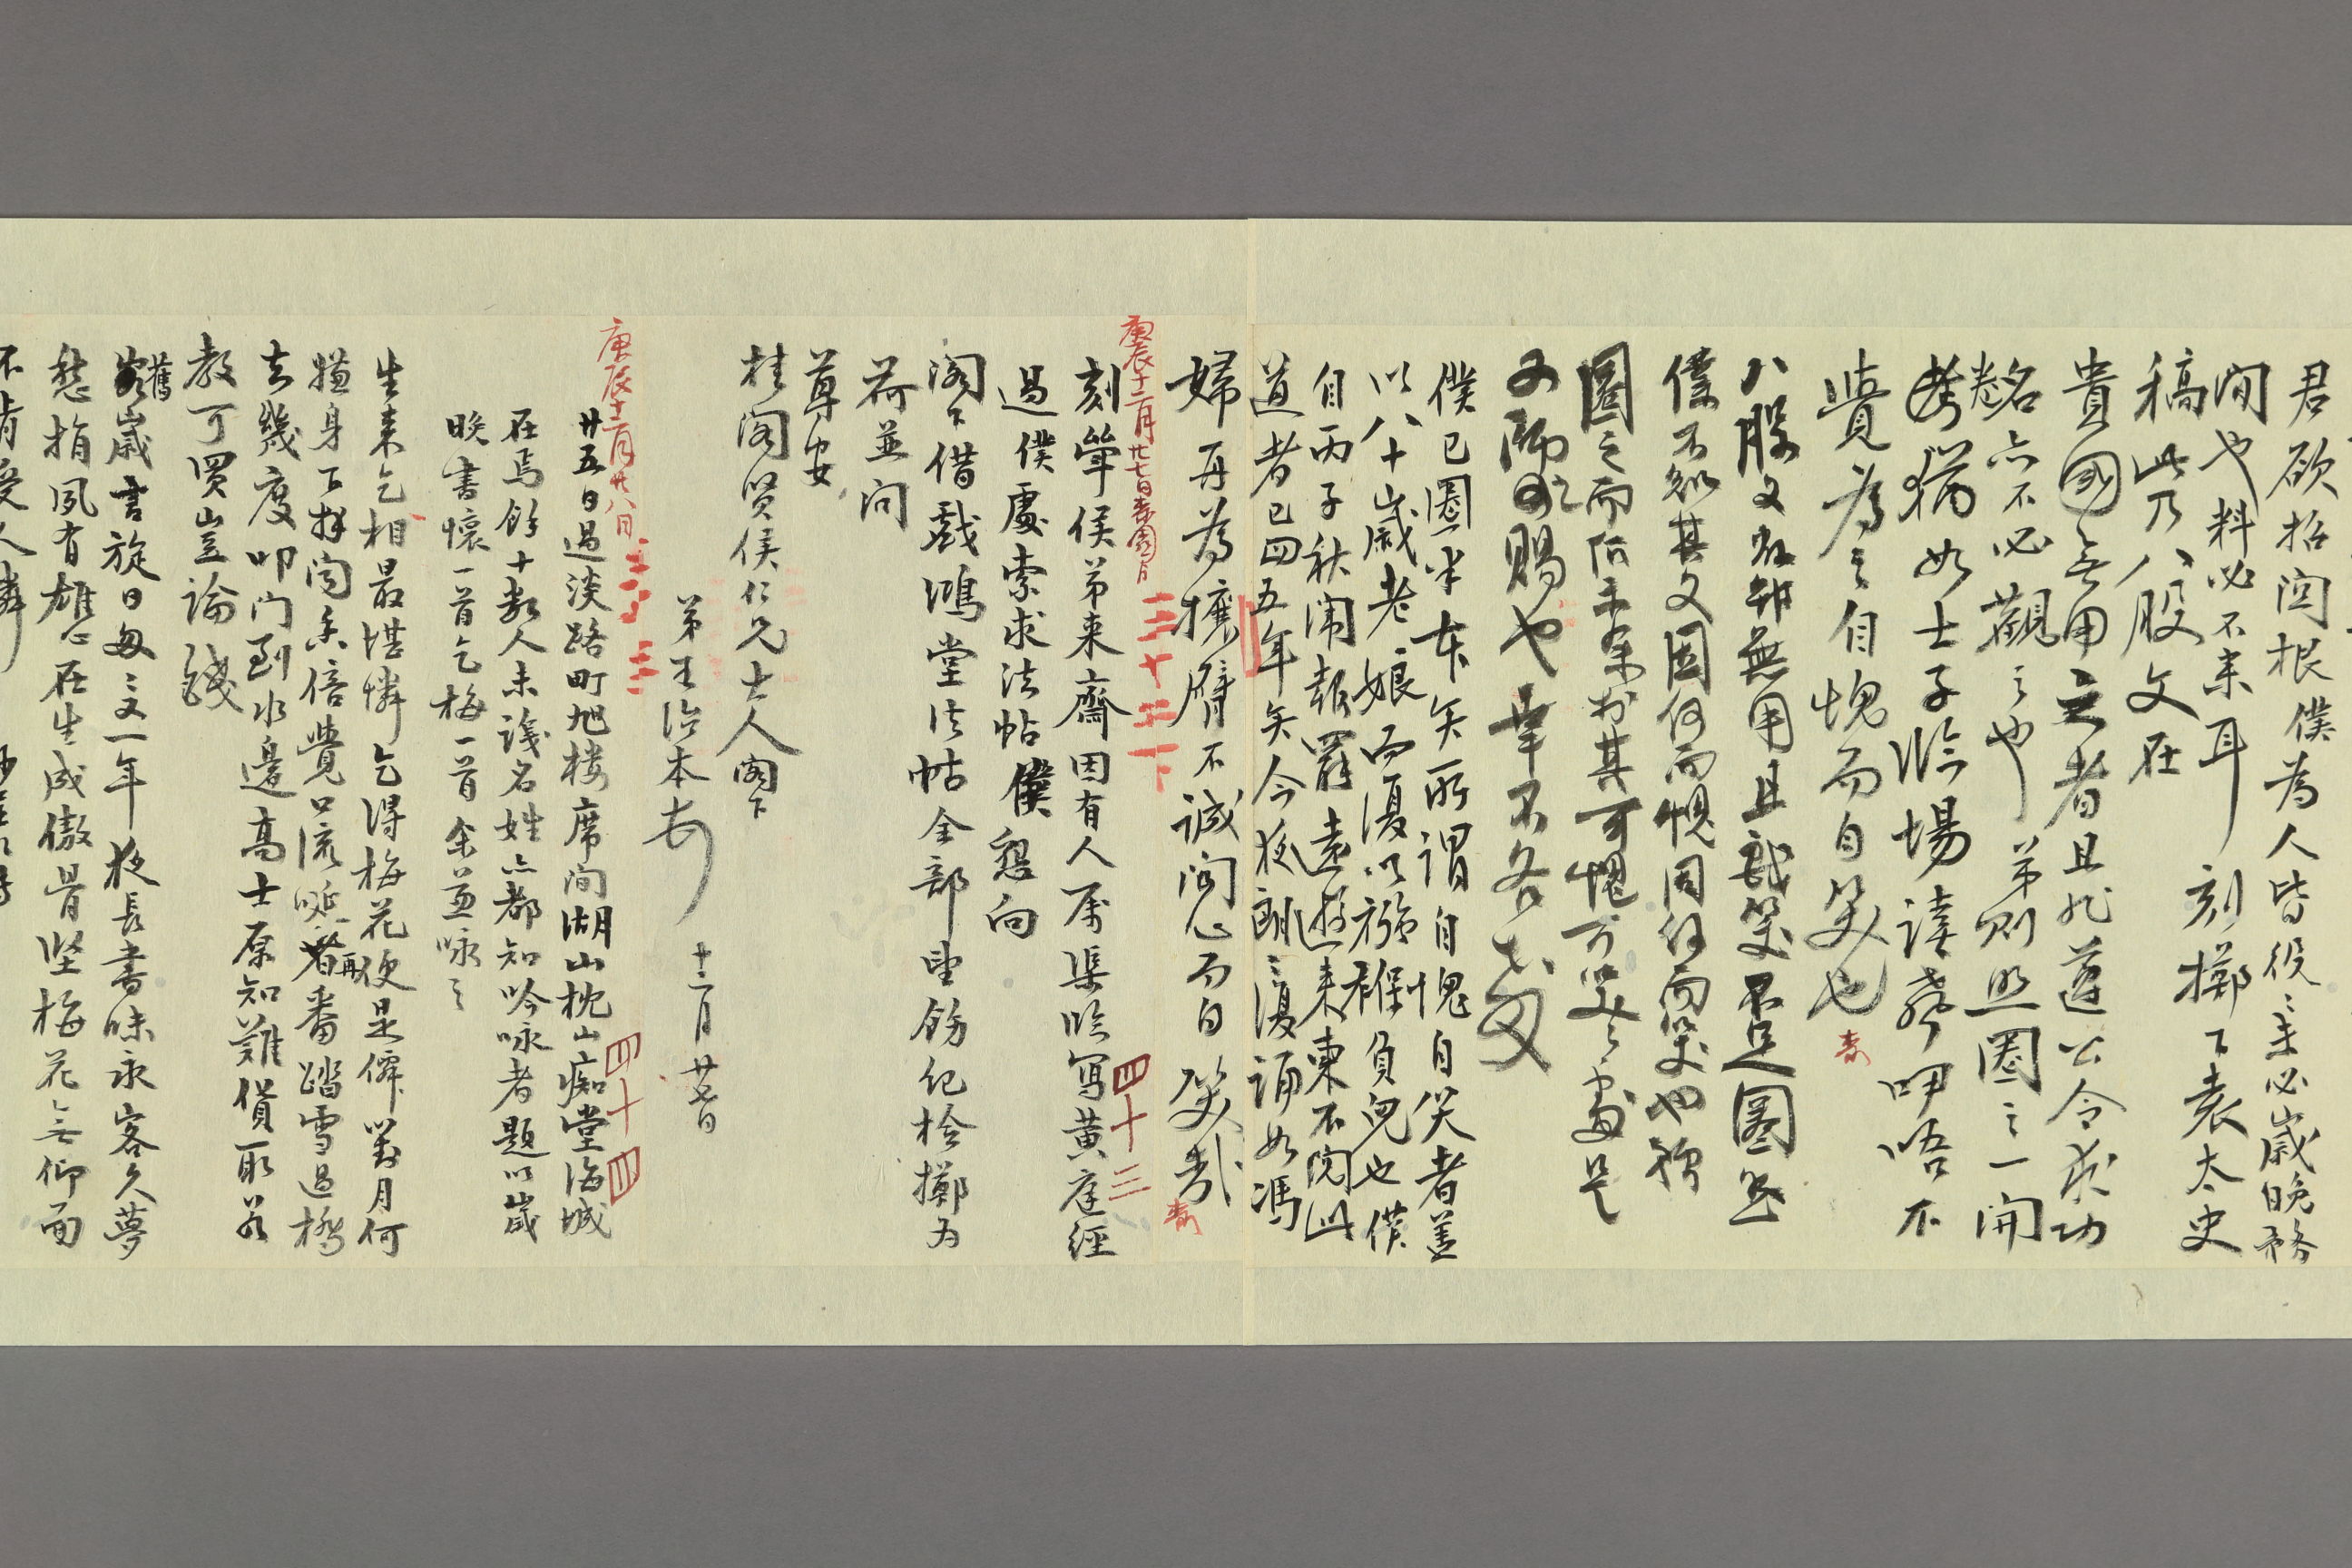 君欲招闊根僕為人皆役之來必歲晚務
間也料必不來耳 刻擲下袁太史
稿 此乃八股文在
貴國無用之者且非遵公令求功
名亦不必觀之也 弟則照圈之一開
卷猶如士子臨場讀聲呷唔不
覺為之自愧而自笑也
八股文敝邦無用且欲笑不足圈然
僕不知其文固何而愧因何而笑也強
圈之而陌生
又所賜也幸不吝教
僕已圈半本矣所謂自愧自笑者蓋
以八十歲老娘而復以襁褓負兒也僕
自丙子秋闈報罷遠遊來東不閱此
道者已四五年矣今夜朗朗復誦如馮
婦再為攘臂不誠問心而自笑哉
庚辰十二月廿七日泰園片
刻筆侯弟來齋因有人屬渠臨寫黃庭經
過僕處索求法帖僕懇向
閣下借戲鴻堂法帖全部望飭紀檢擲為
荷並問
尊安
桂閣賢侯仁兄大人閣下
弟王治本頓 十二月廿七日
四十三
庚辰十二月廿八日
廿五日過淡路町旭樓席間湖山枕山痴堂海城
在焉餘十數人未識名姓亦都知吟咏者題以歲
晚書懷一首乞梅一首余並咏之
四十四
生來乞相最堪憐乞得梅花便是僊對月何
嫌身下拜聞香倍覺口流涎再番踏雪過橋
去幾度叩門到水邊高士原知難貸取若
教可買豈論錢
舊歲言旋日每每又一年夜長書味永客久夢
愁捐夙有雄心在生成傲骨堅梅花無仰面
不肯受人憐